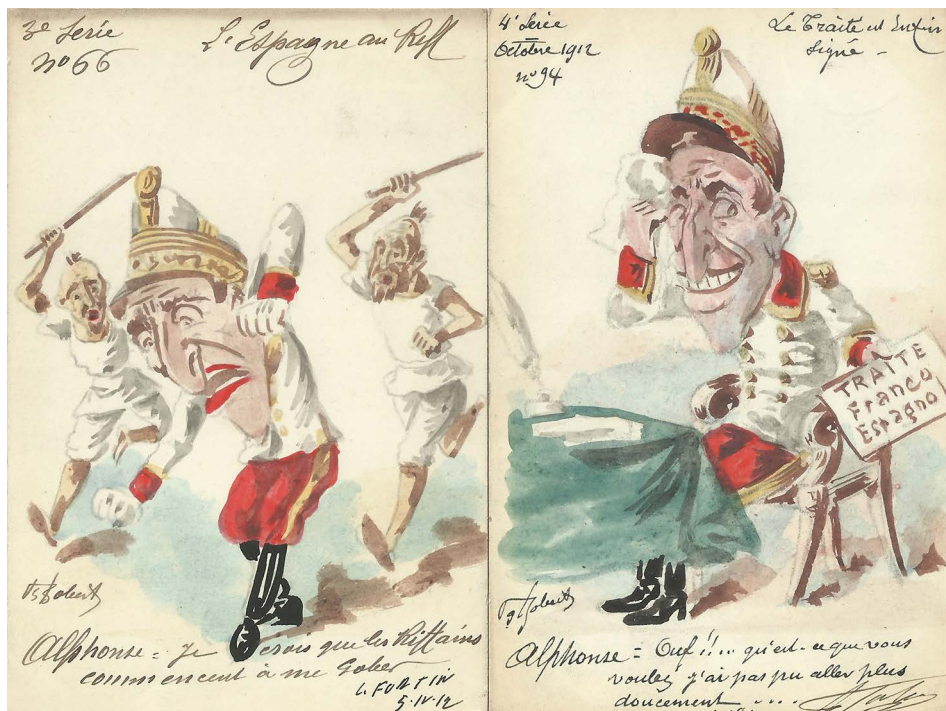 3e Serie
no 66
L'Espagne au Riff
Alphonse = Je crois que les Riffains
commencent à me Gober
L. FORTIN
5-IV-12
4e Serie
Octobre 1912
no 94
Le Traite est Enfin
Signé -
TRAITE
Franco
Espagno
Alphonse = Ouf !!... qu'est-ce que vous
voulez j'ai pas pu aller plus
doucement ....